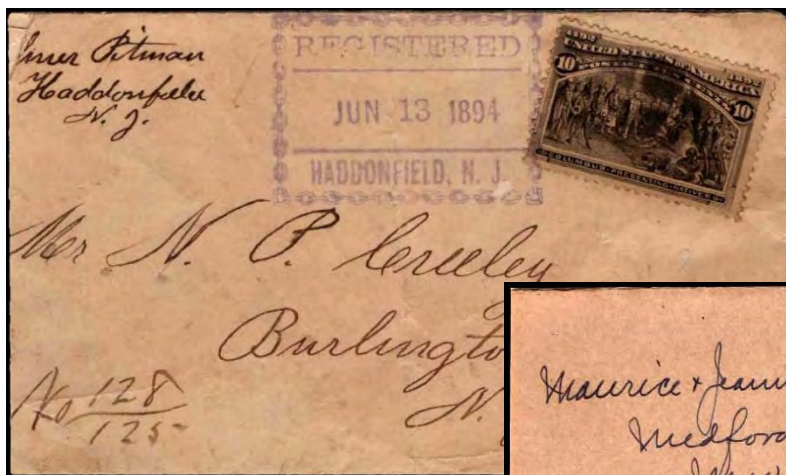 Pitman
Haddonfield
N. J.
REGISTERED
JUN 13 1894
HADDONFIELD, N. J.
1492 1892
UNITED STATES OF AMERICA
POSTAGE TEN CENTS
10 10
COLUMBUS PRESENTING NATIVES
Mr N. P. Creeley
Burlingto
N.
No 128
125
Maurice & Jean
Medford